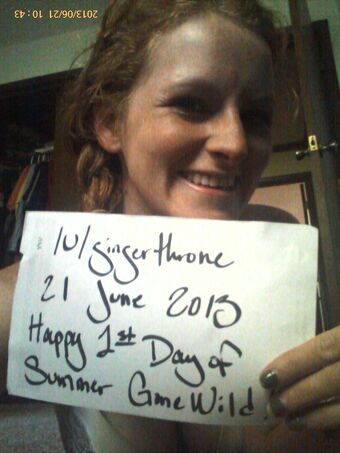 2013/06/21 10:43
/u/gingerthrone
21 June 2013
Happy 1st Day of
Summer GoneWild!